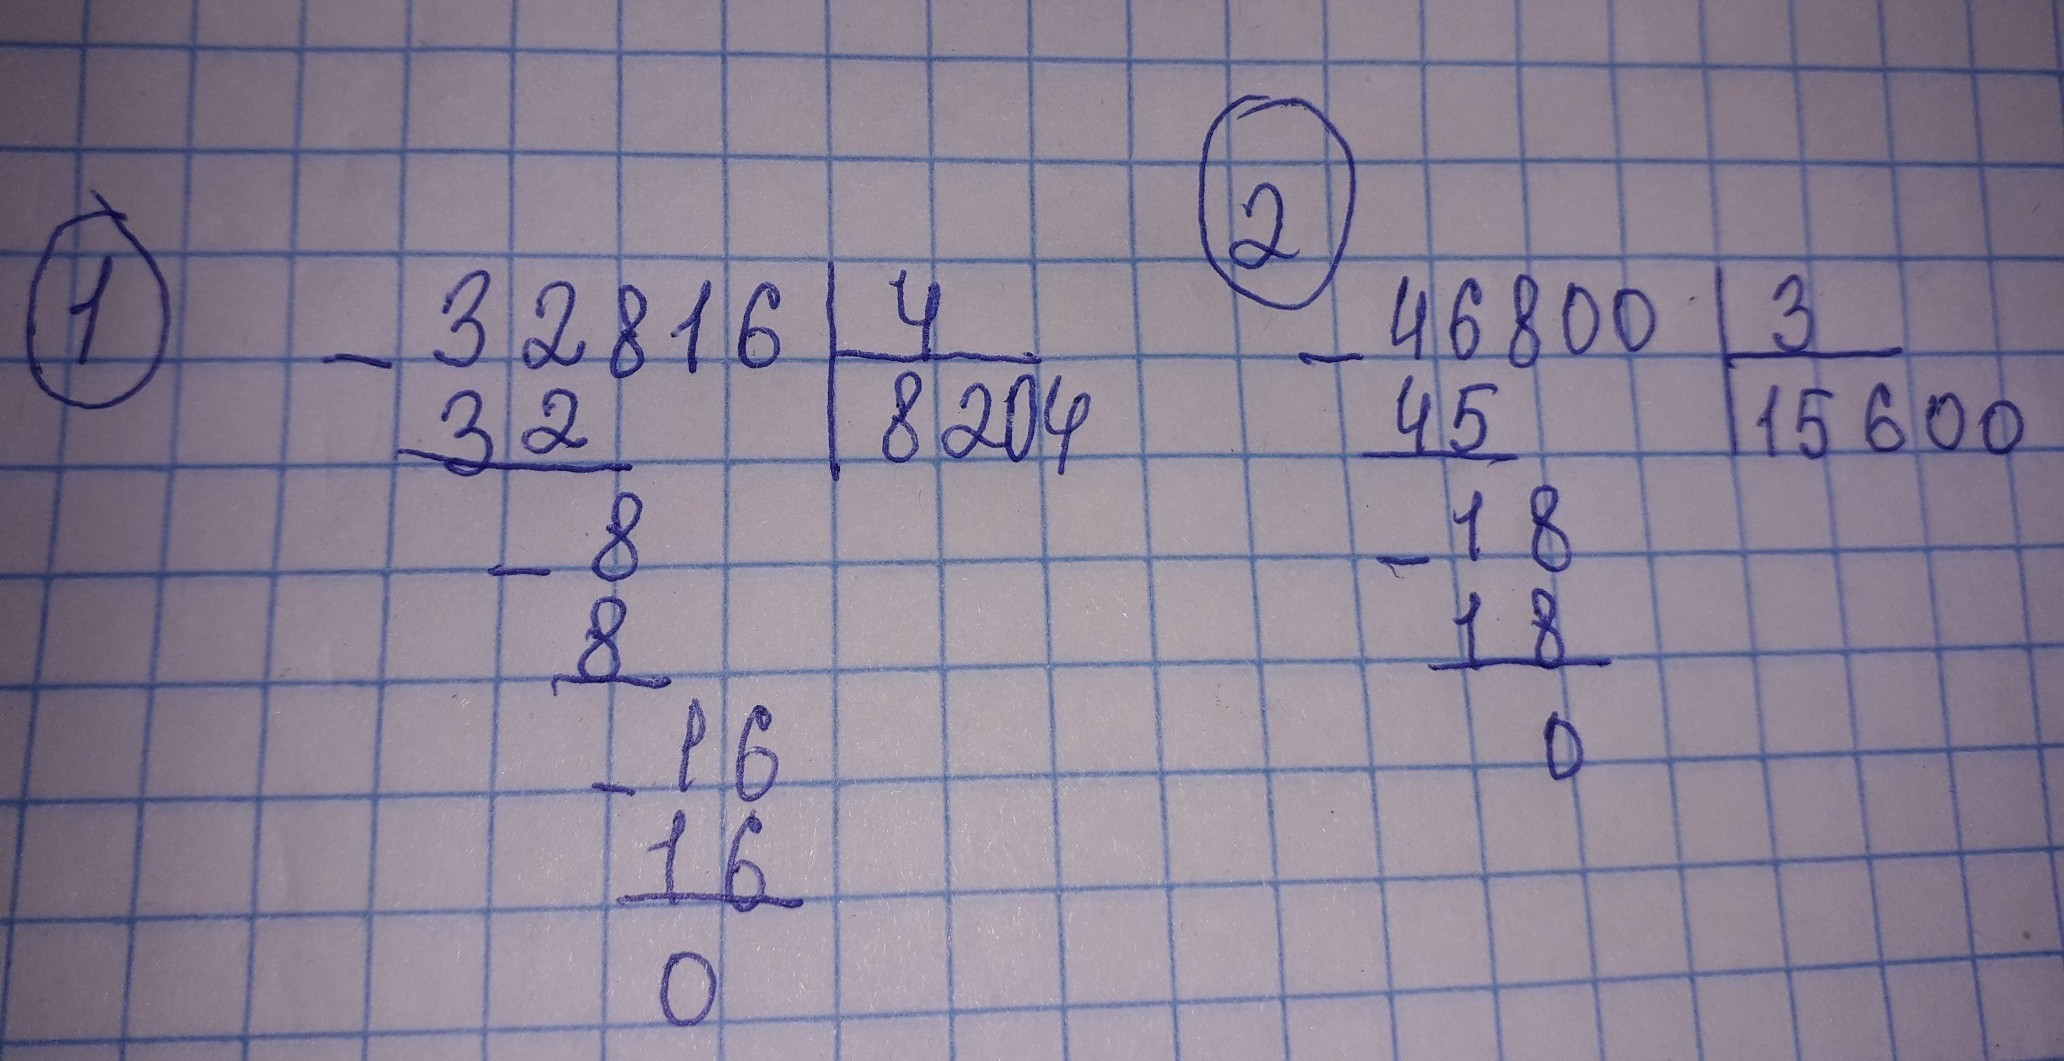 1
- 32816 | 4
32 | 8204
- 8
8
- 16
16
0
2
- 46800 | 3
45 | 15600
- 18
18
0